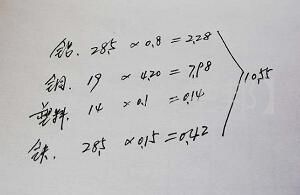 铝. 28.5 × 0.8 = 2.28
铜. 19 × 4.20 = 7.98
塑料. 14 × 0.1 = 0.14
铁. 28.5 × 0.15 = 0.42
10.55